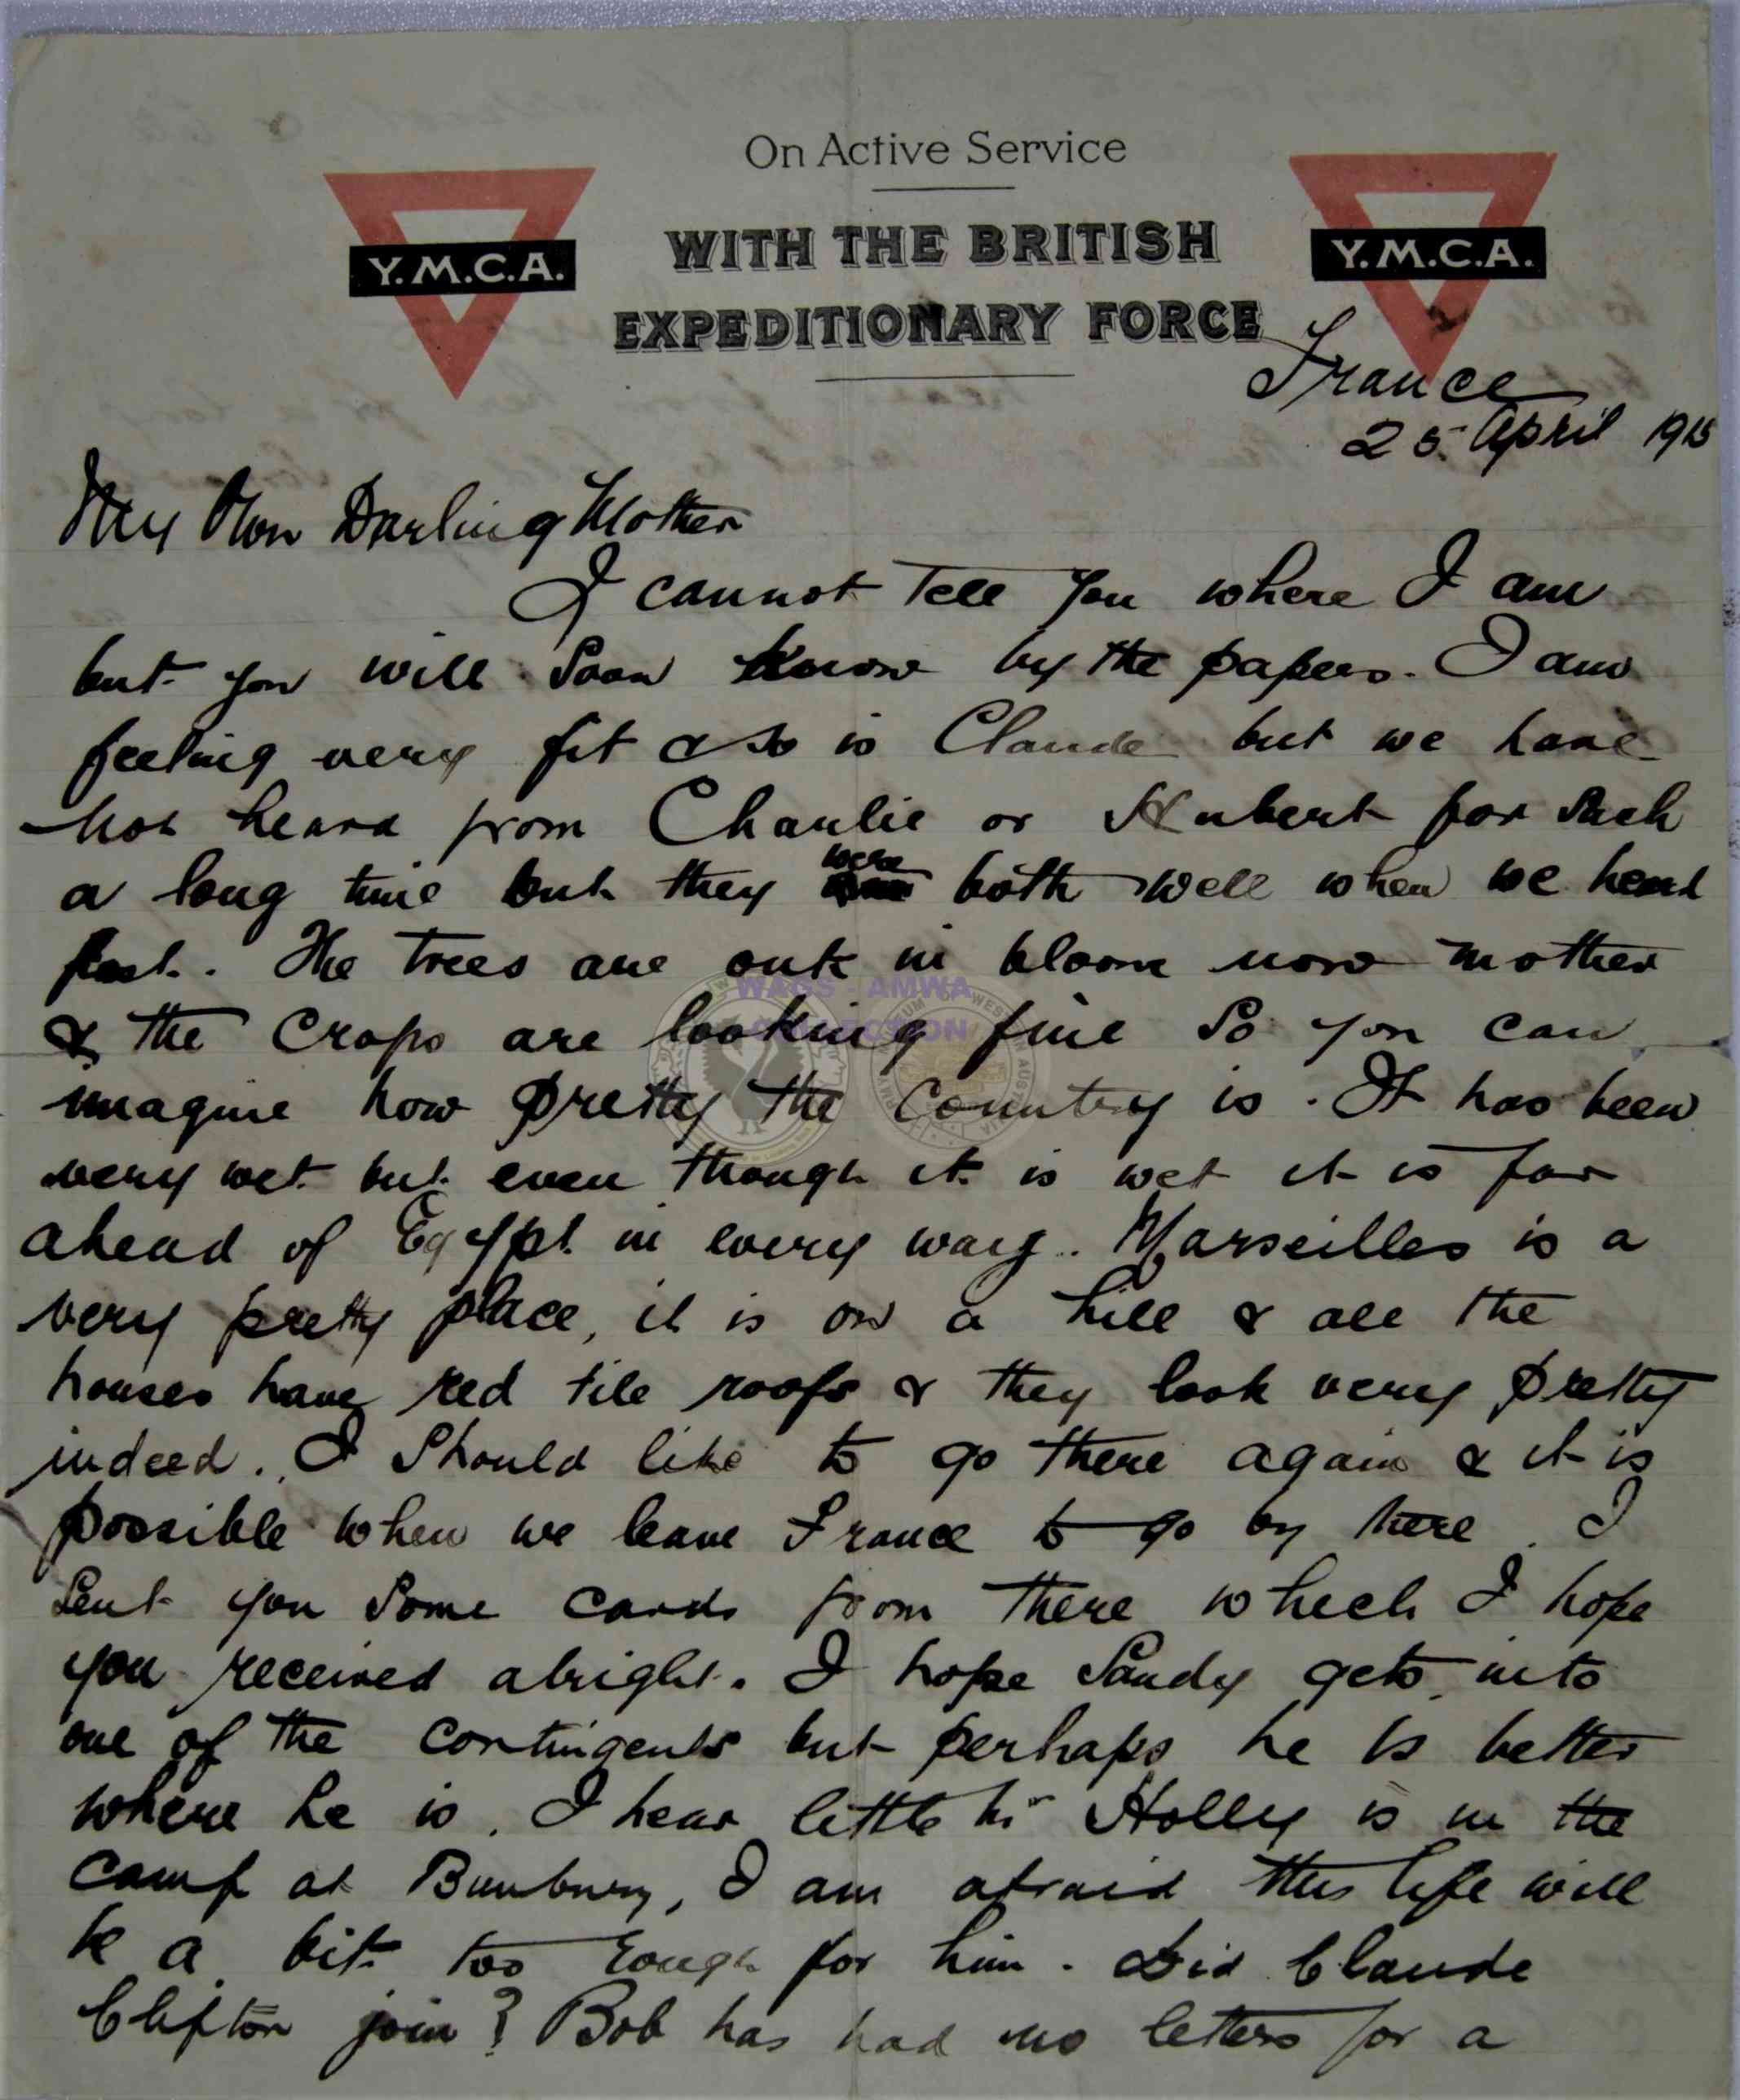 On Active Service
Y.M.C.A.
WITH THE BRITISH
Y.M.C.A.
EXPEDITIONARY FORCE
France
25. April 1915
My Own Darling Mother
I cannot tell you where I am
but you will soon know by the papers. I am
feeling very fit & so is Claude but we have
not heard from Charlie or Hubert for such
a long time but they were both well when we heard
last. The trees are out in bloom now mother
& the crops are looking fine so you can
imagine how pretty the country is. It has been
very wet but even though it is wet it is far
ahead of Egypt in every way. Marseilles is a
very pretty place, it is on a hill & all the
houses have red tile roofs & they look very pretty
indeed. I should like to go there again & it is
possible when we leave France to go by there. I
sent you some cards from there which I hope
you received alright. I hope Sandy gets into
one of the contingents but perhaps he is better
where he is. I hear little Mr Holly is in the
camp at Bunbury, I am afraid this life will
be a bit too rough for him. Did Claude
Clifton join? Bob has had no letters for a
WAGS - AMWA
COLLECTION